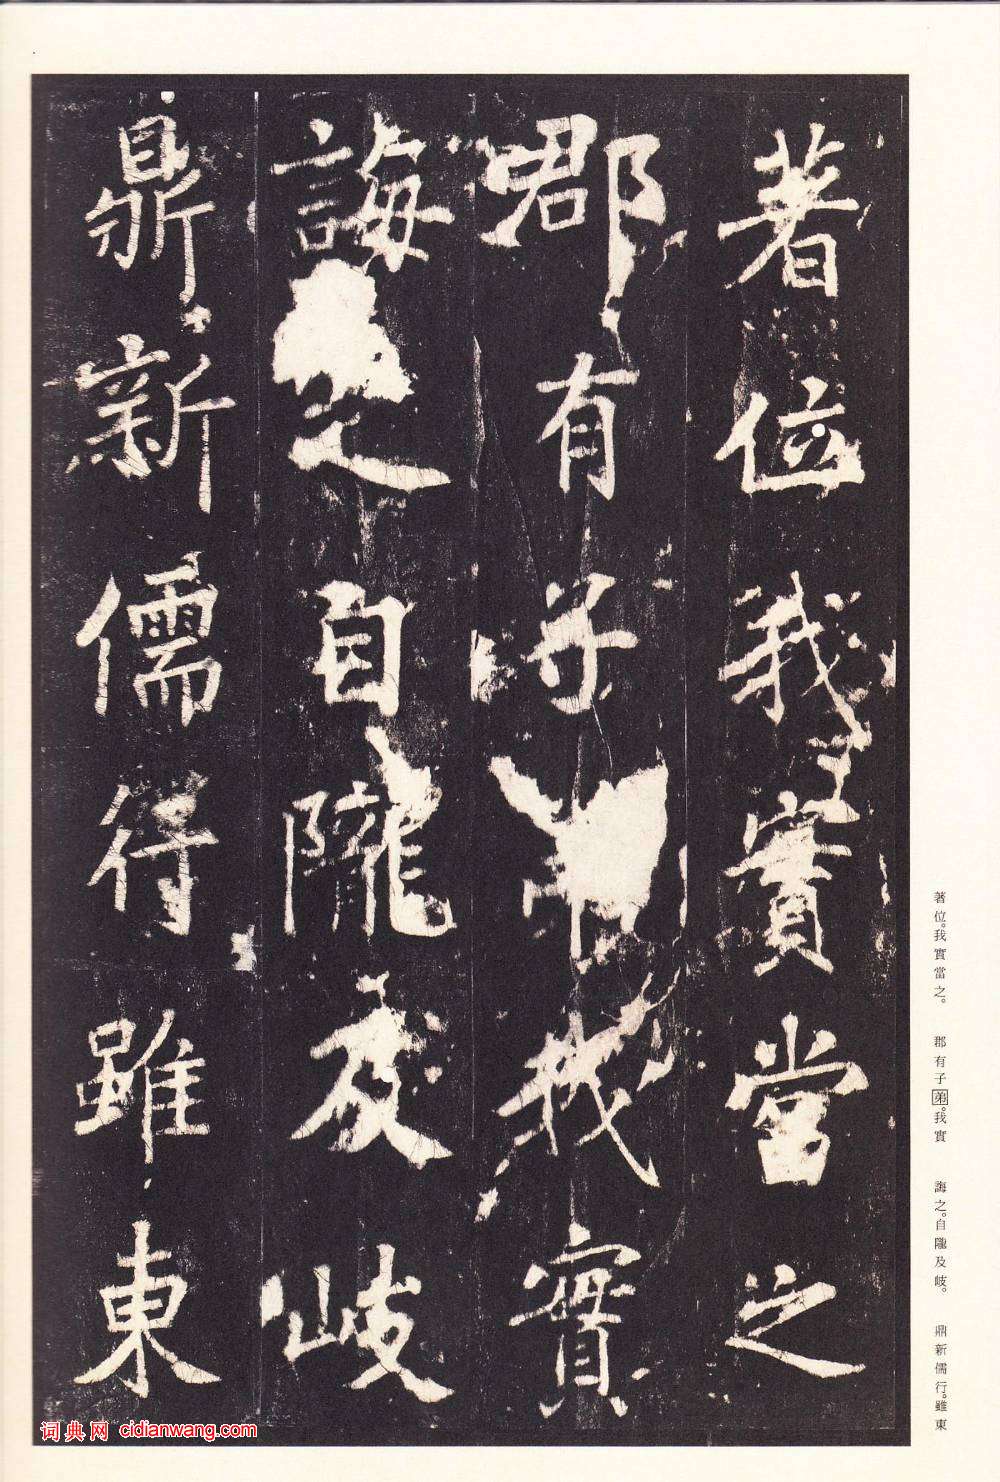 著位我實當之
郡有子弟我實
誨之自隴及岐
鼎新儒行雖東
著位。我實當之。
郡有子弟。我實
誨之。自隴及岐。
鼎新儒行。雖東
词典网 cidianwang.com